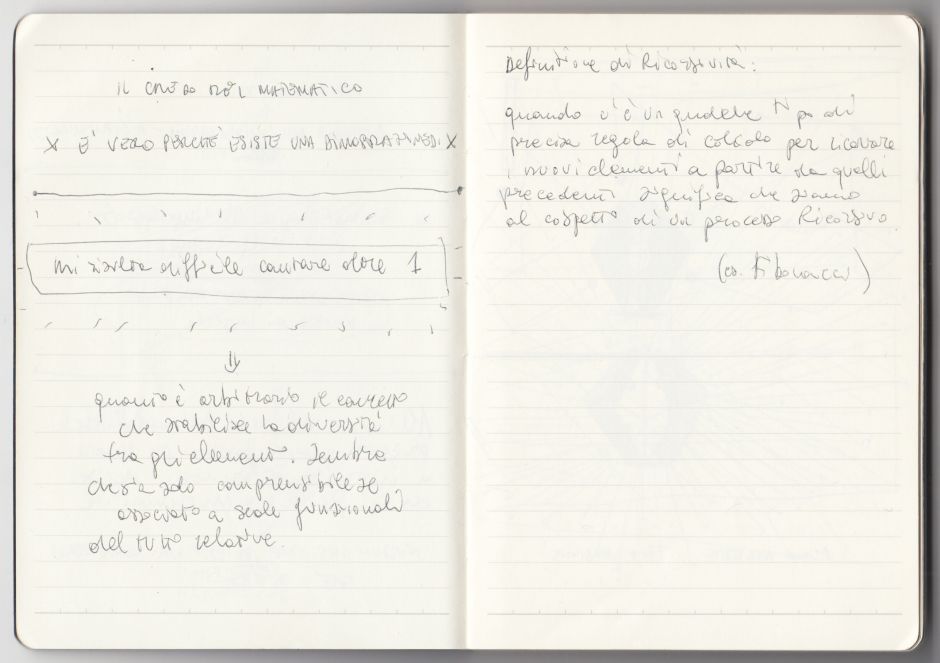 IL CREDO DEL MATEMATICO
X E' VERO PERCHÉ ESISTE UNA DIMOSTRAZIONE X
mi risulta difficile contare oltre 1
⇓
quanto è arbitrario il concetto
che stabilisce la diversità
fra gli elementi. Sembra
che sia solo comprensibile se
associato a scale funzionali
del tutto relative.
Definizione di Ricorsività:
quando c'è un qualche di
precisa regola di calcolo per ricavare
i nuovi elementi a partire da quelli
precedenti significa che siamo
al cospetto di un processo Ricorsivo
(es. Fibonacci)